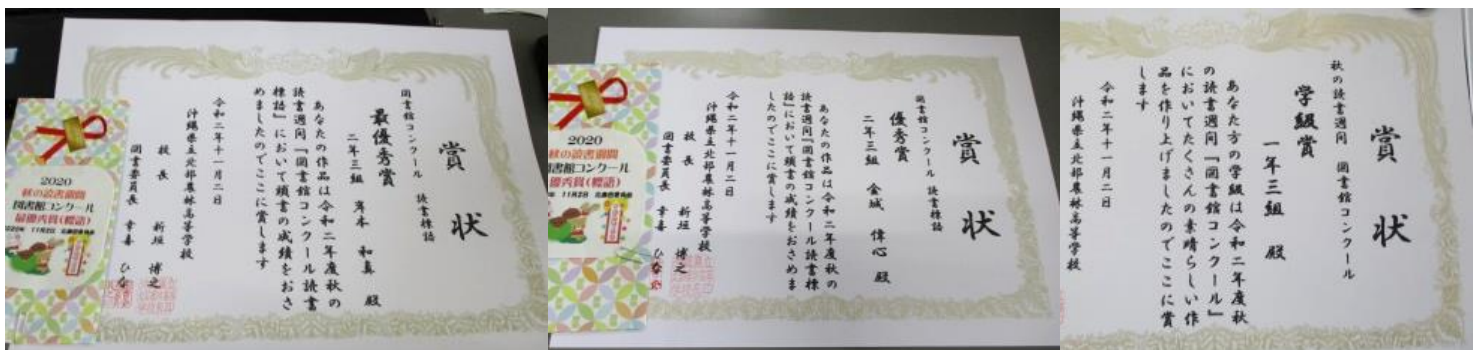 賞状
図書館コンクール 読書標語
最優秀賞
二年三組 岸本 和真 殿
あなたの作品は令和二年度秋の
読書週間『図書館コンクール読書
標語』において頭書の成績をおさ
めましたのでここに賞します
令和二年十一月二日
沖縄県立北部農林高等学校
校長 新垣 博之
図書委員長 幸喜 ひな
2020
秋の読書週間
図書館コンクール
最優秀賞(標語)
賞状
図書館コンクール 読書標語
優秀賞
二年三組 金城 偉心 殿
あなたの作品は令和二年度秋の
読書週間図書館コンクール読書標
語』において頭書の成績をおさめま
したのでここに賞します
令和二年十一月二日
沖縄県立北部農林高等学校
校長 新垣 博之
図書委員長 幸喜 ひな
2020
秋の読書週間
図書館コンクール
優秀賞(標語)
賞状
秋の読書週間 図書館コンクール
学級賞
一年三組 殿
あなた方の学級は令和二年度秋
の読書週間『図書館コンクール』
においてたくさんの素晴らしい作
品を作り上げましたのでここに賞
します
令和二年十一月二日
沖縄県立北部農林高等学校